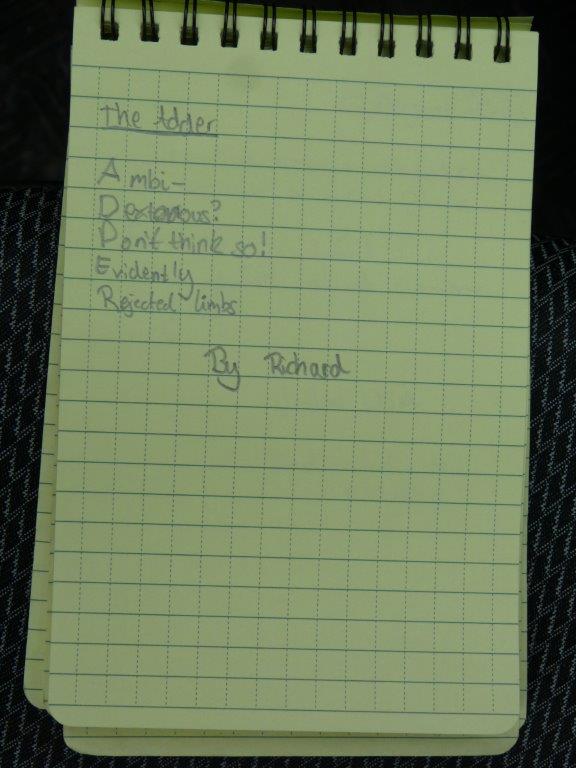 The Adder
Ambi-
Dexterous?
Don't think so!
Evidently
Rejected limbs
By Richard